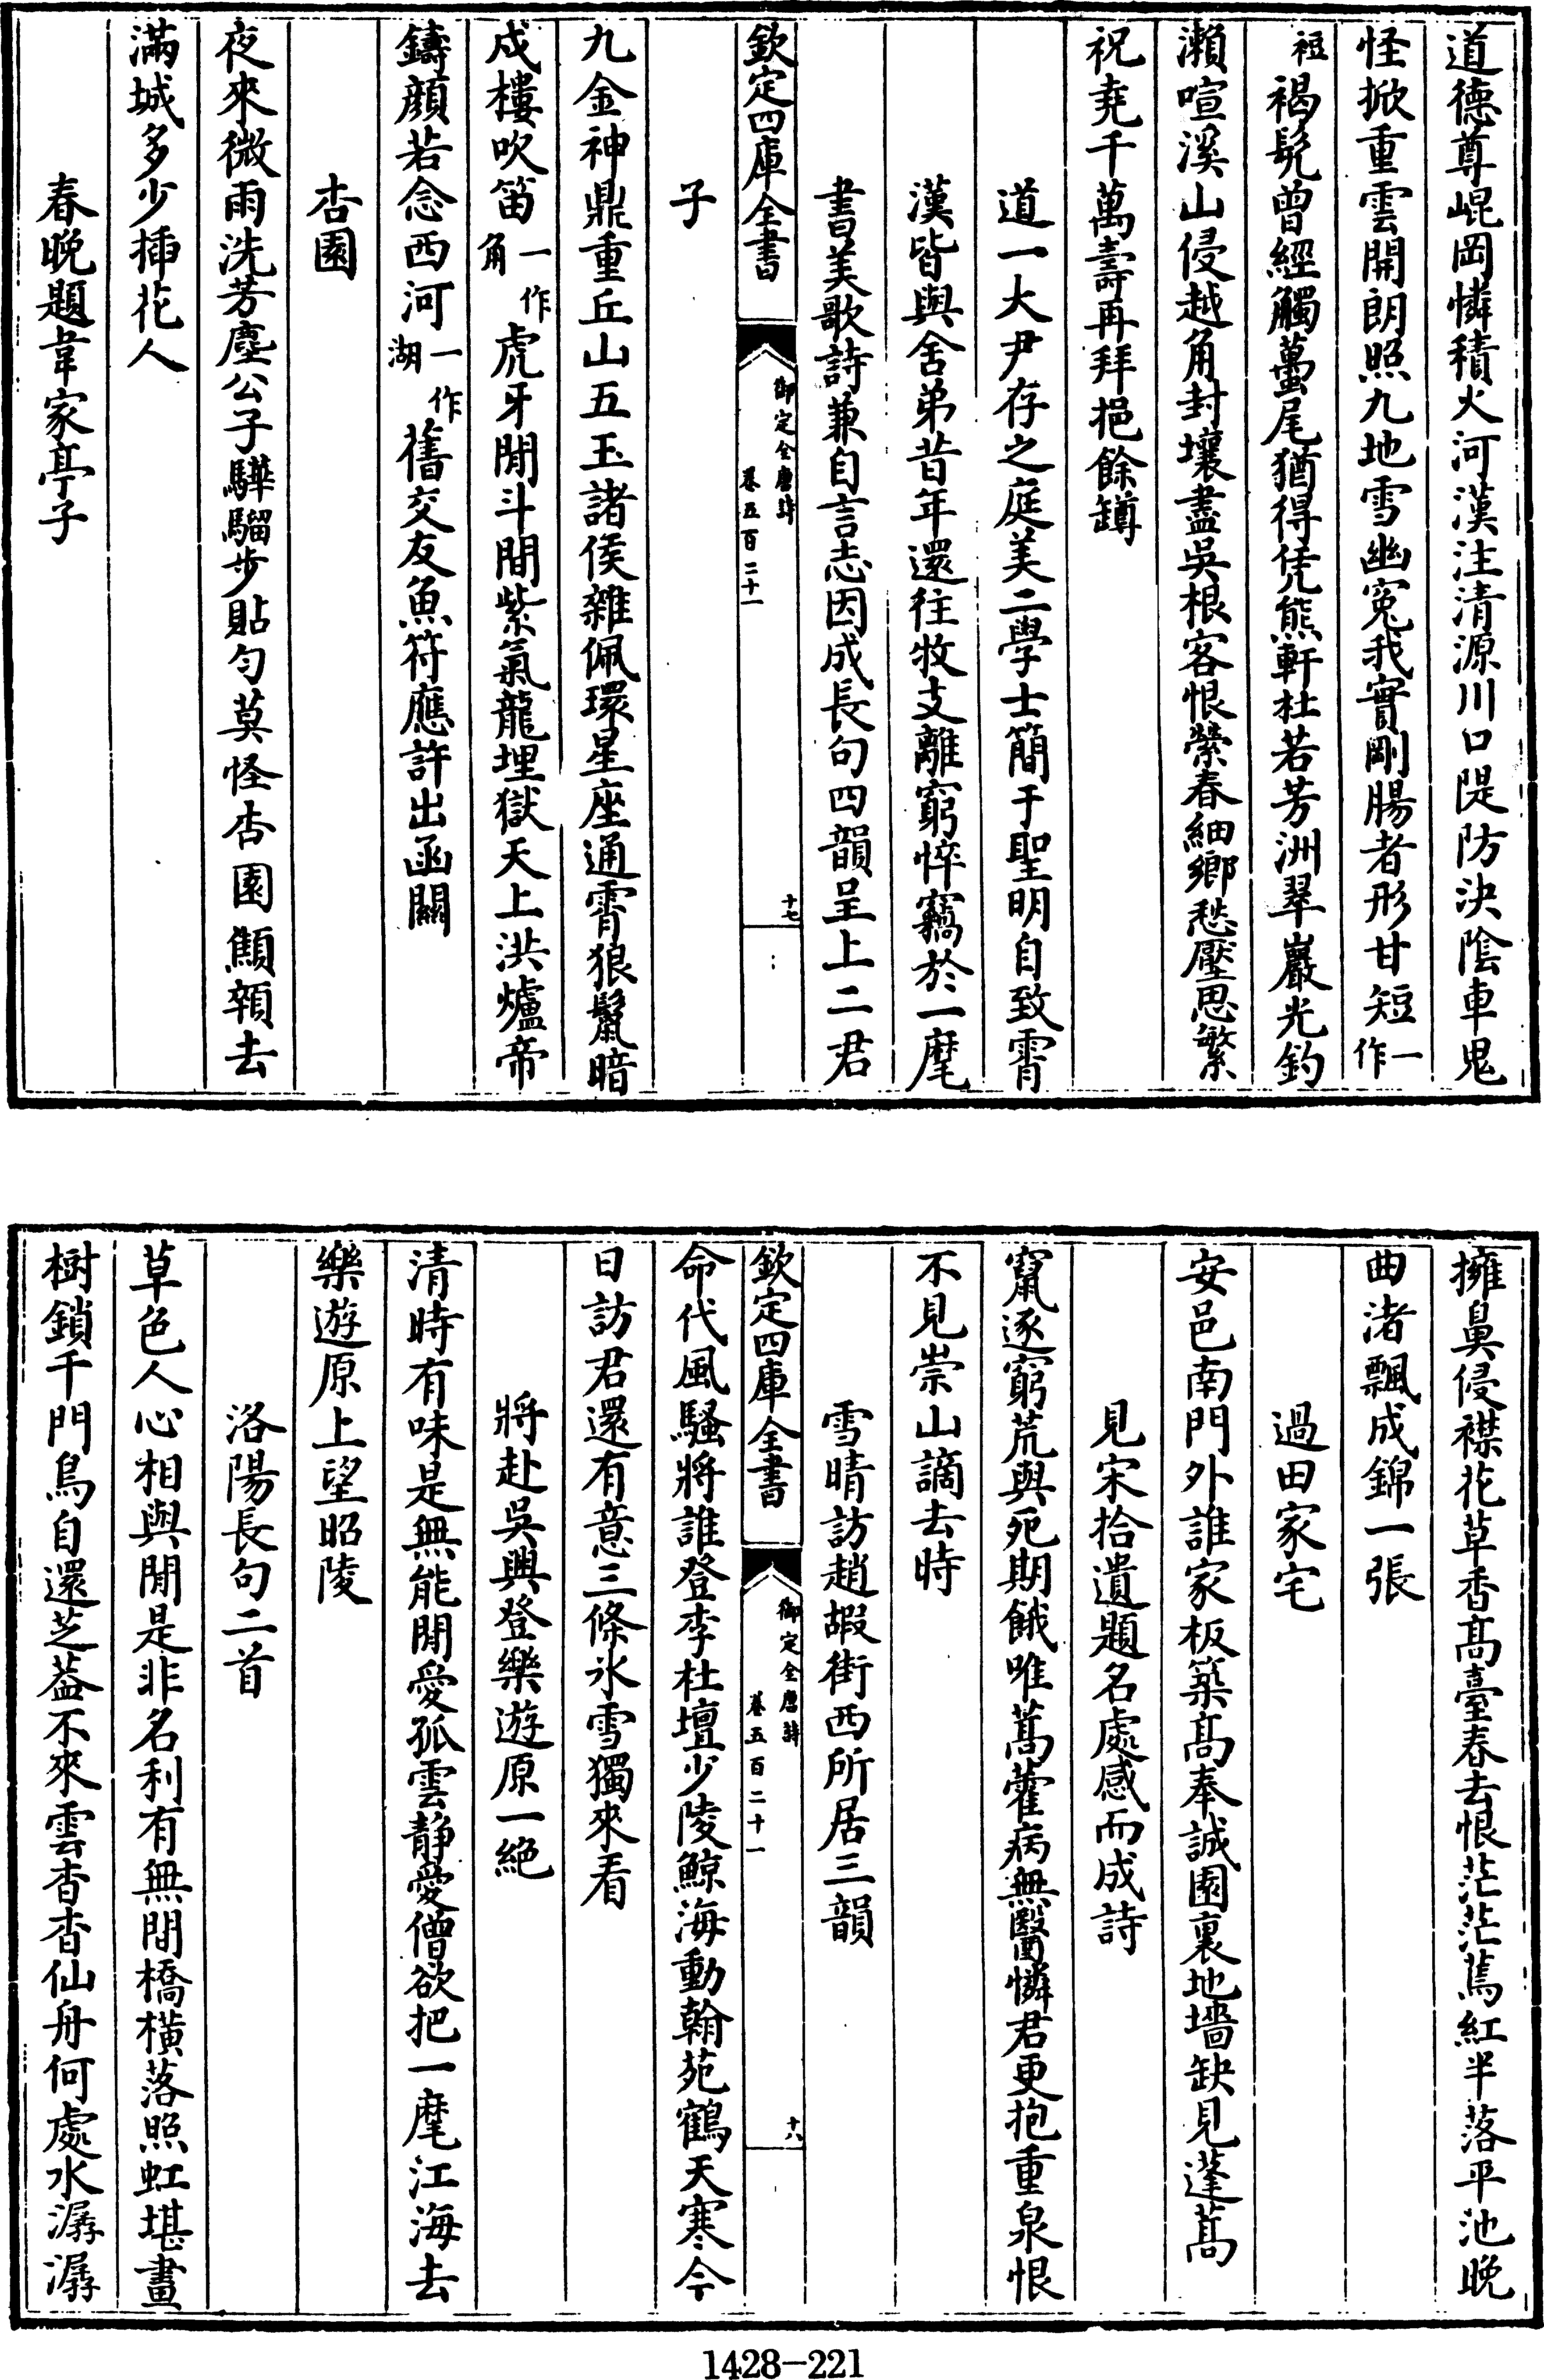 道德尊崐岡憐積火河漢注清源川口隄防決陰車鬼
怪掀重雲開朗照九地雪幽寃我實剛腸者形甘短一作
祖褐髠曾經觸蠆尾猶得凭熊軒杜若芳洲翠巖光釣
瀨喧溪山侵越角封壤盡吳根客恨縈春細鄉愁壓思繁
祝堯千萬壽再拜挹餘罇
道一大尹存之庭美二學士簡于聖明自致霄
漢皆與舍弟昔年還往牧支離窮悴竊於一麾
書美歌詩兼自言志因成長句四韻呈上二君
欽定四庫全書
御定全唐詩
卷五百二十一
十七
子
九金神鼎重丘山五玉諸侯雜佩環星座通霄狼鬣暗
戍樓吹笛一作角虎牙閒斗間紫氣龍埋獄天上洪爐帝
鑄顔若念西河一作湖舊交友魚符應許出函關
杏園
夜來微雨洗芳塵公子驊騮步貼勻莫怪杏園顦顇去
滿城多少揷花人
春晚題韋家亭子
擁鼻侵襟花草香髙臺春去恨茫茫蔫紅半落平池晚
曲渚飄成錦一張
過田家宅
安邑南門外誰家板築髙奉誠園裏地墻缺見蓬蒿
見宋拾遺題名處感而成詩
竄逐窮荒與死期餓唯蒿藿病無醫憐君更抱重泉恨
不見崇山謫去時
雪晴訪趙嘏街西所居三韻
欽定四庫全書
御定全唐詩
卷五百二十一
十八
命代風騷將誰登李杜壇少陵鯨海動翰苑鶴天寒今
日訪君還有意三條氷雪獨來看
將赴吳興登樂遊原一絶
清時有味是無能閒愛孤雲静愛僧欲把一麾江海去
樂遊原上望昭陵
洛陽長句二首
草色人心相與閒是非名利有無間橋橫落照虹堪畫
樹鎖千門鳥自還芝葢不來雲杳杳仙舟何處水潺潺
1428-221